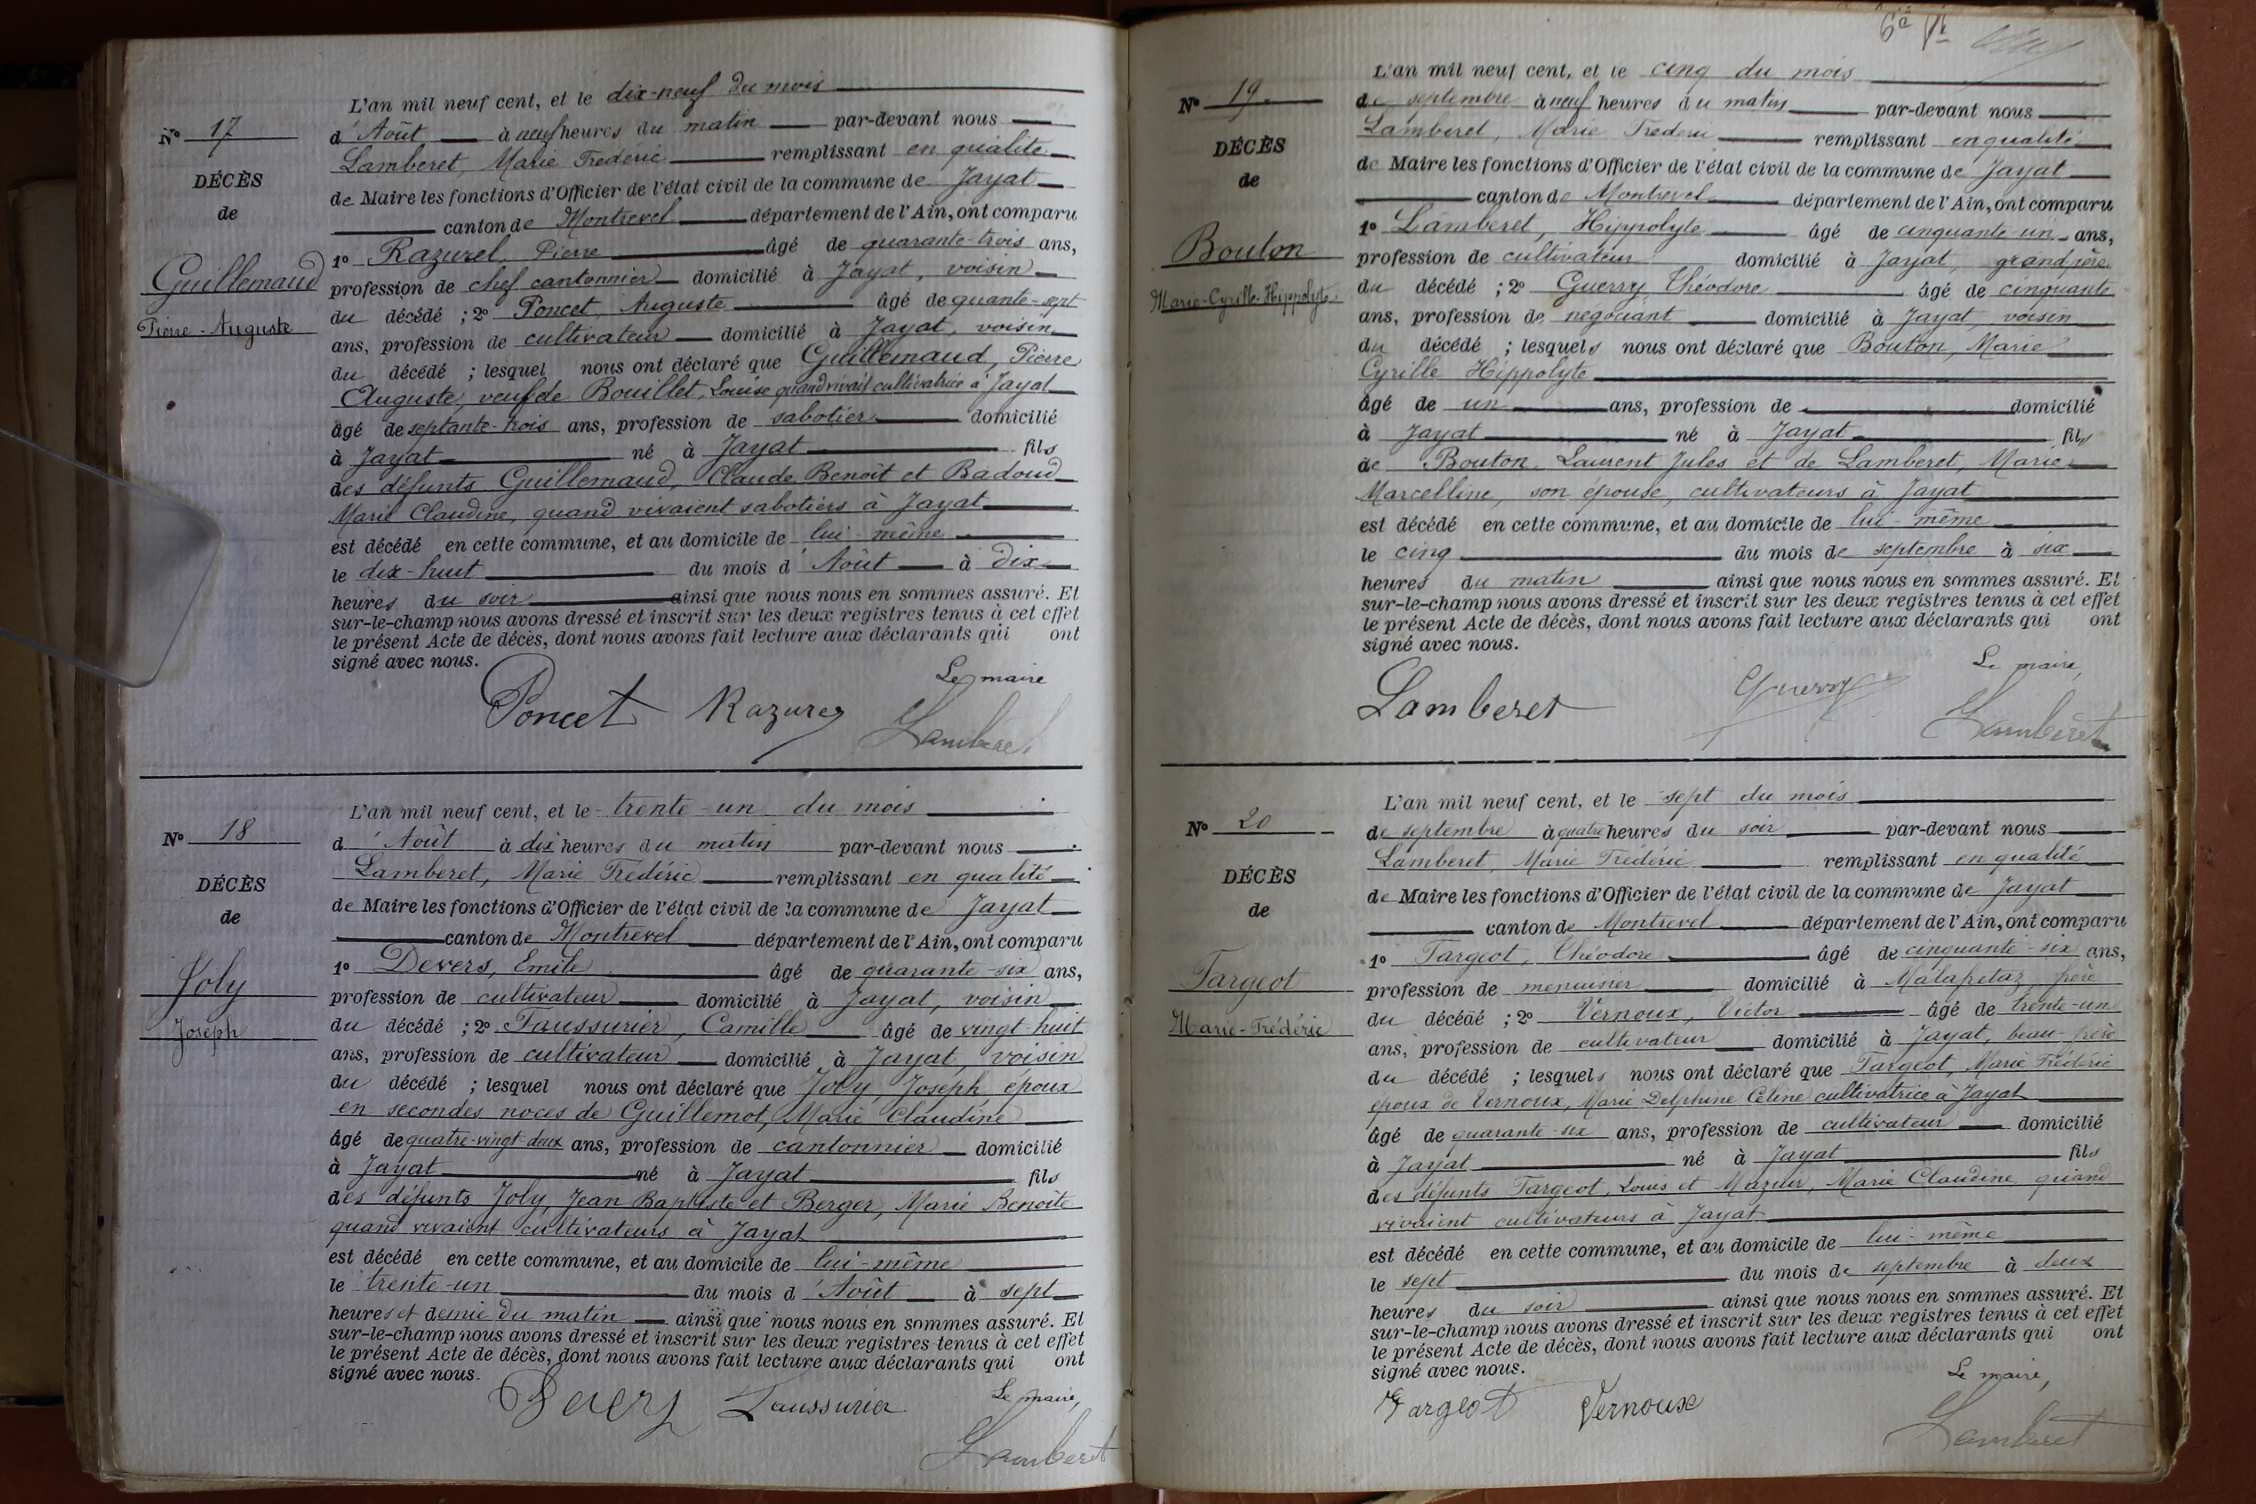 N° 17
DÉCÈS
de
Guillemaud
Pierre-Auguste
L'an mil neuf cent, et le dix-neuf du mois
d'Août à neuf heures du matin par-devant nous
Lamberet, Marie Frédéric remplissant en qualité
de Maire les fonctions d'Officier de l'état civil de la commune de Jayat
canton de Montrevel département de l'Ain, ont comparu
1° Razurel, Pierre âgé de quarante-trois ans,
profession de chef cantonnier domicilié à Jayat, voisin
du décédé ; 2° Poncet, Auguste âgé de quante-sept
ans, profession de cultivateur domicilié à Jayat, voisin
du décédé ; lesquel nous ont déclaré que Guillemaud, Pierre
Auguste, veuf de Bouillet, Louise quand vivait cultivatrice à Jayat
âgé de septante-trois ans, profession de sabotier domicilié
à Jayat né à Jayat fils
des défunts Guillemaud, Claude Benoît et Badoud
Marie Claudine, quand vivaient sabotiers à Jayat
est décédé en cette commune, et au domicile de lui-même
le dix-huit du mois d'Août à dix
heures du soir ainsi que nous nous en sommes assuré. Et
sur-le-champ nous avons dressé et inscrit sur les deux registres tenus à cet effet
le présent Acte de décès, dont nous avons fait lecture aux déclarants qui ont
signé avec nous.
Le maire
Poncet Razurel Lamberet
N° 18
DÉCÈS
de
Joly
Joseph
L'an mil neuf cent, et le trente-un du mois
d'Août à dix heures du matin par-devant nous
Lamberet, Marie Frédéric remplissant en qualité
de Maire les fonctions d'Officier de l'état civil de la commune de Jayat
canton de Montrevel département de l'Ain, ont comparu
1° Devers, Emile âgé de quarante-six ans,
profession de cultivateur domicilié à Jayat, voisin
du décédé ; 2° Faussurier, Camille âgé de vingt-huit
ans, profession de cultivateur domicilié à Jayat, voisin
du décédé ; lesquel nous ont déclaré que Joly, Joseph, époux
en secondes noces de Guillemot, Marie Claudine
âgé de quatre-vingt-deux ans, profession de cantonnier domicilié
à Jayat né à Jayat fils
des défunts Joly, Jean Baptiste et Berger, Marie Benoîte
quand vivaient cultivateurs à Jayat
est décédé en cette commune, et au domicile de lui-même
le trente-un du mois d'Août à sept
heures et demie du matin ainsi que nous nous en sommes assuré. Et
sur-le-champ nous avons dressé et inscrit sur les deux registres tenus à cet effet
le présent Acte de décès, dont nous avons fait lecture aux déclarants qui ont
signé avec nous.
Le maire,
Faussurier Lamberet
N° 19
DÉCÈS
de
Bouton
Marie-Cyrille-Hippolyte
L'an mil neuf cent, et le cinq du mois
de septembre à neuf heures du matin par-devant nous
Lamberet, Marie Frédéric remplissant en qualité
de Maire les fonctions d'Officier de l'état civil de la commune de Jayat
canton de Montrevel département de l'Ain, ont comparu
1° Lamberet, Hippolyte âgé de cinquante-un ans,
profession de cultivateur domicilié à Jayat, grand père
du décédé ; 2° Guerry, Théodore âgé de cinquante
ans, profession de négociant domicilié à Jayat, voisin
du décédé ; lesquels nous ont déclaré que Bouton, Marie
Cyrille Hippolyte
âgé de un ans, profession de domicilié
à Jayat né à Jayat fils
de Bouton, Laurent Jules et de Lamberet, Marie
Marcelline, son épouse, cultivateurs à Jayat
est décédé en cette commune, et au domicile de lui-même
le cinq du mois de septembre à six
heures du matin ainsi que nous nous en sommes assuré. Et
sur-le-champ nous avons dressé et inscrit sur les deux registres tenus à cet effet
le présent Acte de décès, dont nous avons fait lecture aux déclarants qui ont
signé avec nous.
Le maire,
Lamberet Guerry Lamberet
N° 20
DÉCÈS
de
Targeot
Marie-Frédéric
L'an mil neuf cent, et le sept du mois
de septembre à quatre heures du soir par-devant nous
Lamberet, Marie Frédéric remplissant en qualité
de Maire les fonctions d'Officier de l'état civil de la commune de Jayat
canton de Montrevel département de l'Ain, ont comparu
1° Targeot, Théodore âgé de cinquante-six ans,
profession de menuisier domicilié à Malapetaz, frère
du décédé ; 2° Vernoux, Victor âgé de trente-un
ans, profession de cultivateur domicilié à Jayat, beau-frère
du décédé ; lesquels nous ont déclaré que Targeot, Marie Frédéric
époux de Vernoux, Marie Delphine Céline cultivatrice à Jayat
âgé de quarante-six ans, profession de cultivateur domicilié
à Jayat né à Jayat fils
des défunts Targeot, Louis et Mazuir, Marie Claudine quand
vivaient cultivateurs à Jayat
est décédé en cette commune, et au domicile de lui-même
le sept du mois de septembre à deux
heures du soir ainsi que nous nous en sommes assuré. Et
sur-le-champ nous avons dressé et inscrit sur les deux registres tenus à cet effet
le présent Acte de décès, dont nous avons fait lecture aux déclarants qui ont
signé avec nous.
Le maire,
Targeot Vernoux Lamberet